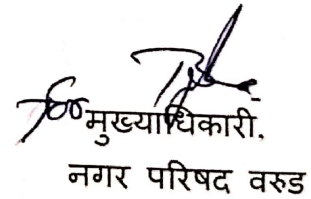 for मुख्याधिकारी.
नगर परिषद वरुड